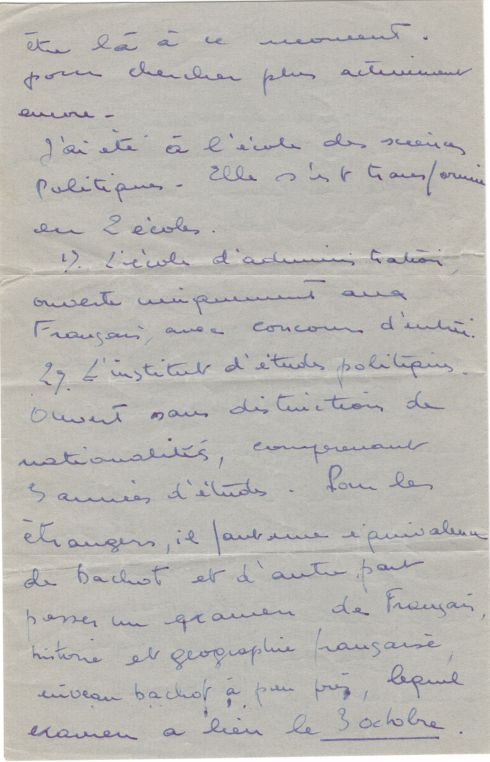 être là à ce moment.
pour chercher plus activement
encore -
J'ai été à l'école des sciences
Politiques - Elle s'est transformée
en 2 écoles.
1). L'école d'administration,
ouverte uniquement aux
Français, avec concours d'entrée.
2). L'institut d'études politiques.
Ouvert sans distinction de
nationalités, comprenant
3 années d'études. Pour les
étrangers, il faut une équivalence
de bachot et d'autre part
passer un examen de Français,
histoire et géographie française,
niveau bachot à peu près, lequel
examen a lieu le 3 octobre.